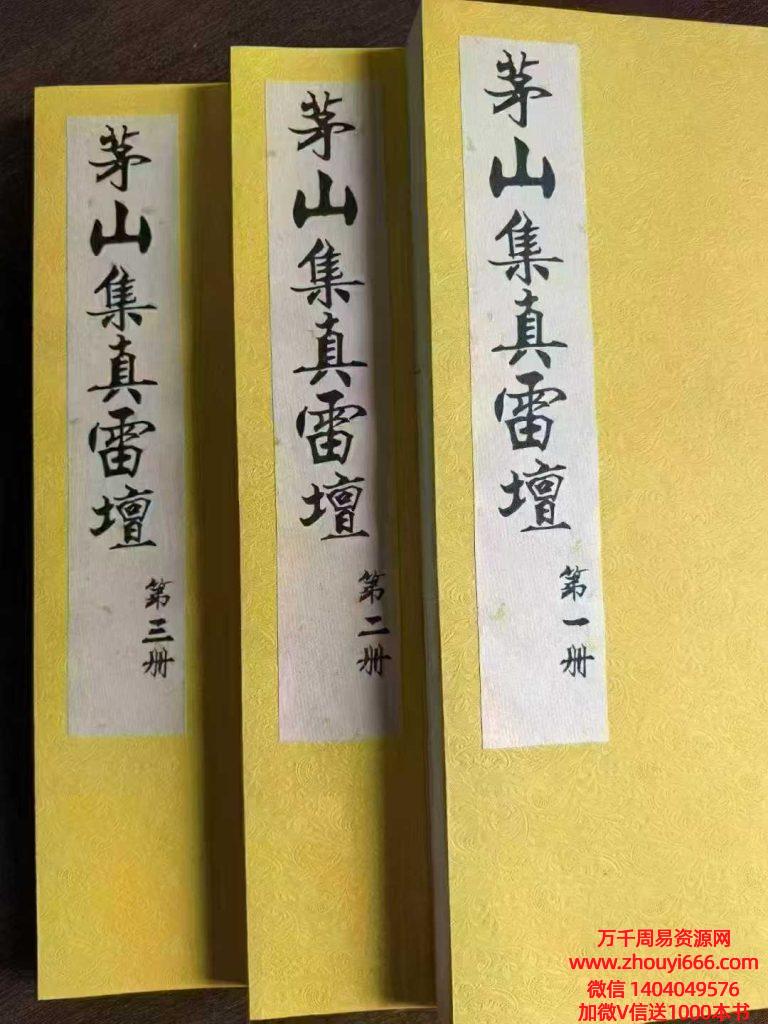 茅山集真雷壇
第一册
茅山集真雷壇
第二册
茅山集真雷壇
第三册
万千周易资源网
www.zhouyi666.com
微信 1404049576
加微V信送1000本书